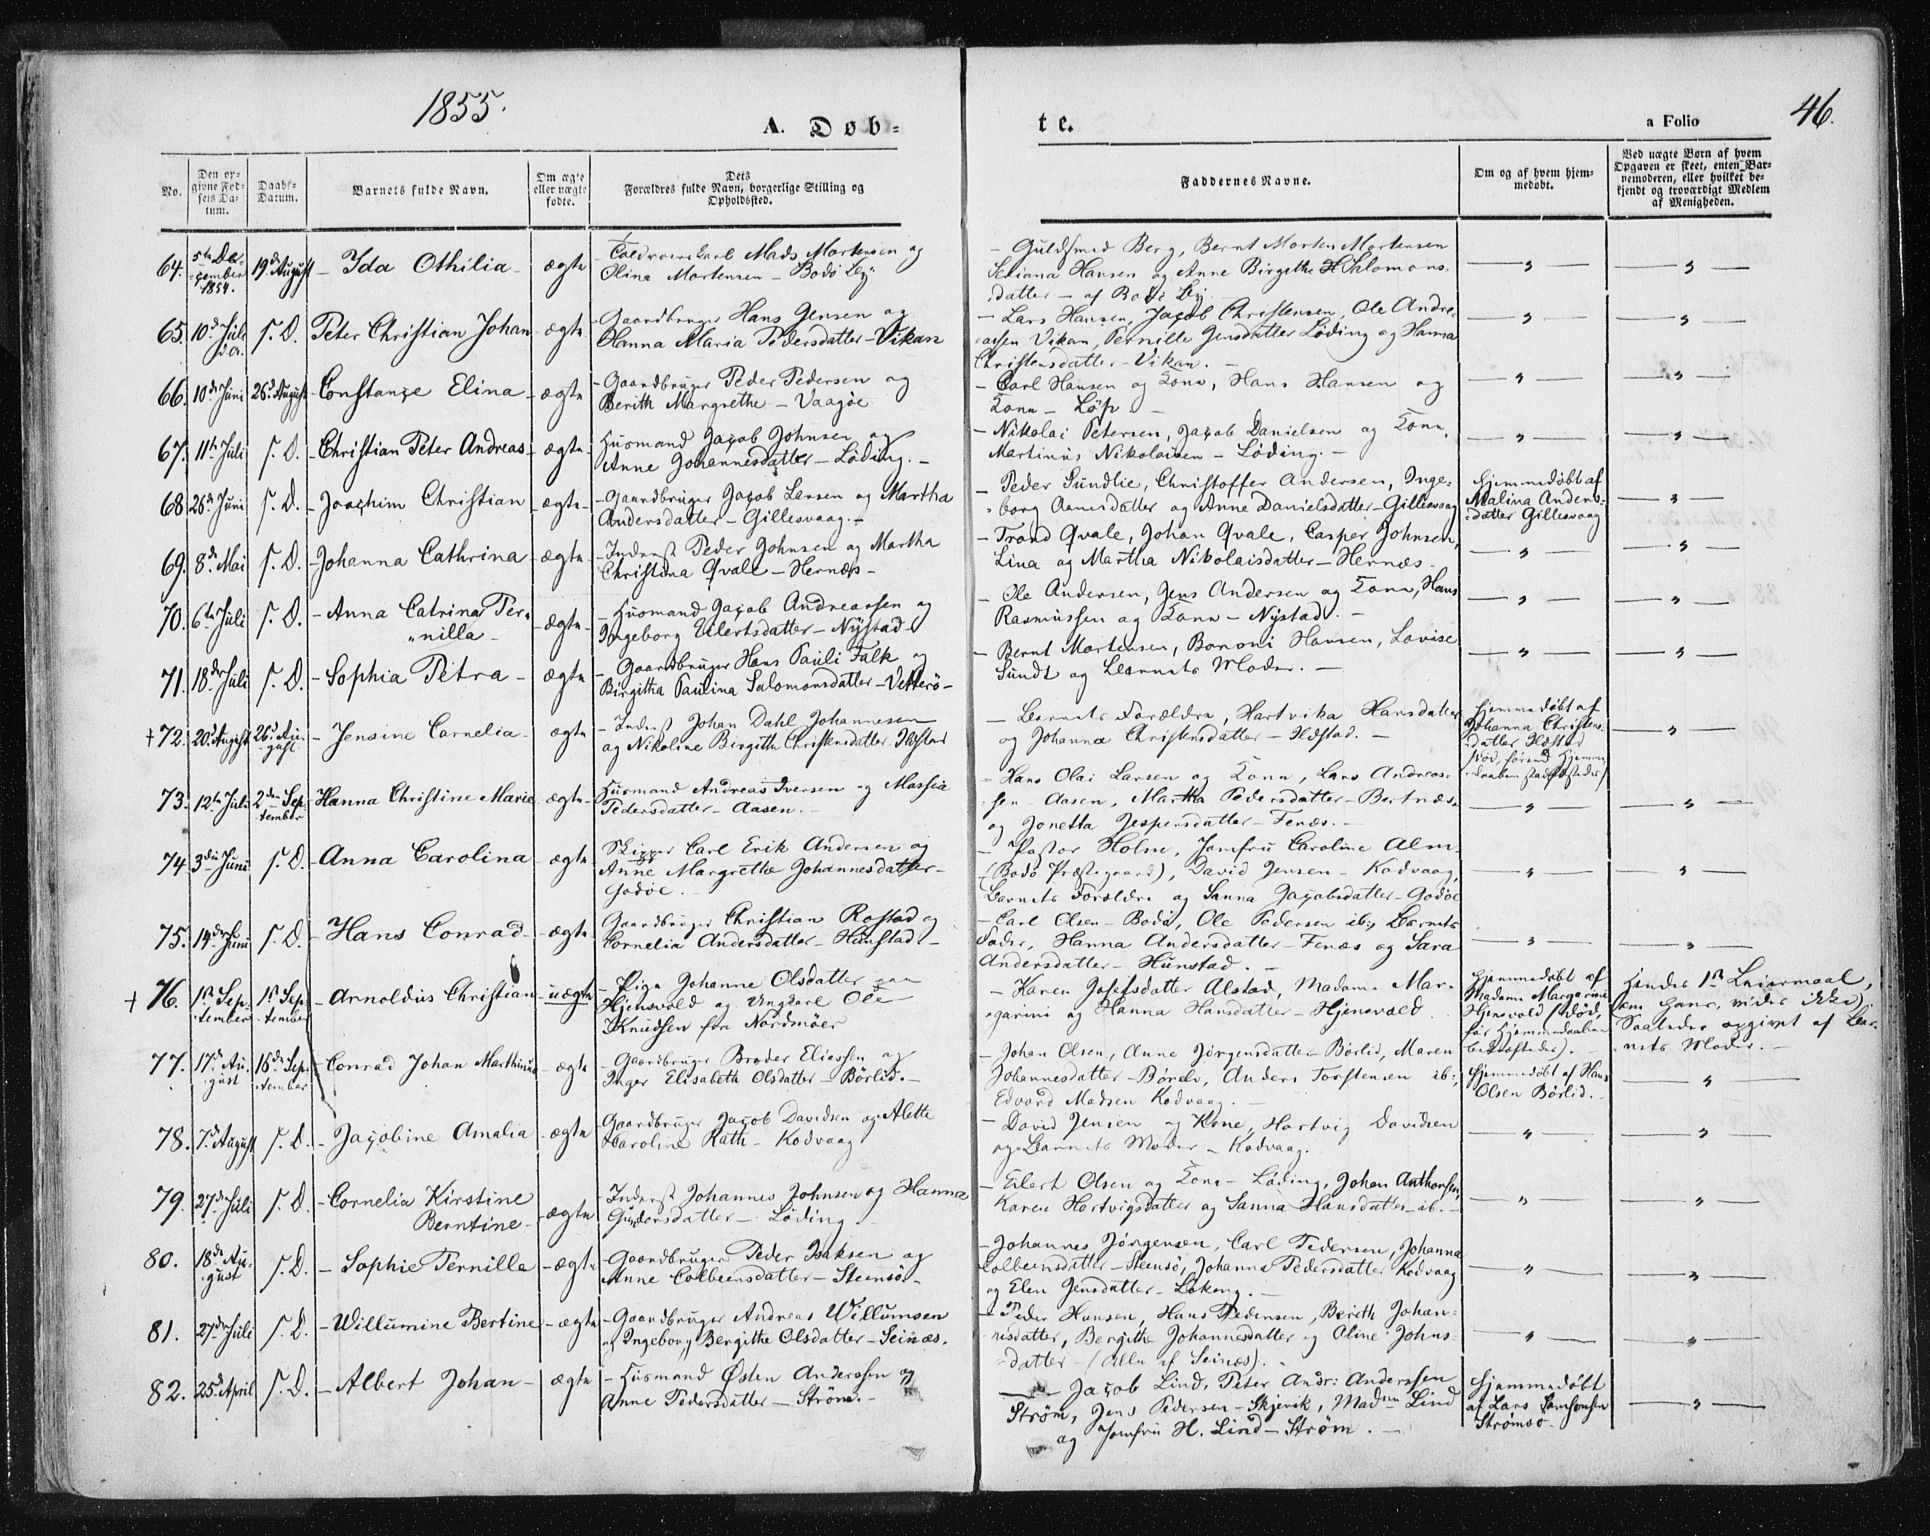 1855.
A. Døb-
te.
a Folio
46.
No.
Den op-
givne Fød-
sels Da-
tum.
Daabs-
Datum.
Barnets fulde Navn.
Om ægte
eller uægte
fødte.
Dets
Forældres fulde Navn, borgerlige Stilling og
Opholdssted.
Faddernes Navne.
Om og af hvem hjem-
medøbt.
Ved uægte Børn af hvem
Opgaven er skeet, enten Bar-
nemoderen, eller hvilket be-
kjendt og troværdigt Medlem
af Menigheden.
64. 5te De-
cember
1854. 19de August - Ida Othilia - ægte - Mads Mortensen og
Olina Mortensen - Bodö By
- Guldsmed Berg, Bernt Morten Mortensen
Hansen og Anne Birgithe H Salomons-
datter - af Bodö By
65. 10de Juli s. D. Peter Christian Johan - ægte - Gaardbruger Hans Jensen og
Hanna Maria Pedersdatter - Vikan
- Lars Hansen, Jacob Christensen, Ole Andre-
assen Vikan, Pernille Jensdatter Löding og Hanna
Christensdatter - Vikan. -
66. 10de Juni 26de August - Constance Elina - ægte - Gaardbruger Peder Pedersen og
Berith Margrethe - Vaagöe
- Carl Hansen og Kone, Hans Hansen og
Kone - Löp -
67. 11te Juli s. D. - Christian Peter Andreas - ægte - Husmand Jacob Johnsen og
Anne Johannesdatter - Löding. -
- Nikolai Petersen, Jacob Danielsen og Kone,
Martinus Nikolaisen - Löding. -
68 26de Juni s. D. - Joachim Christian - ægte - Gaardbruger Jacob Larsen og Martha
Andersdatter - Gillesvaag. -
- Peder Sundlie, Christoffer Andersen, Inge-
borg datter og Anne Danielsdatter - Gillesvaag
Hjemmedöbt af
Malina Anders-
datter Gillesvaag
69. 8de Mai s. D. - Johanna Cathrina - ægte - Inderst Peder Johnsen og Martha
Christina Qvale - Hernæs -
- Trond Qvale, Johan Qvale, Casper Johnsen,
Lina og Martha Nikolaisdatter - Hernæs -
70. 6te Juli s. D. - Anna Catrina Per-
nilla - ægte - Husmand Jacob Andreassen og
Ingeborg Eilertsdatter - Nystad -
- Ole Andersen, Jens Andersen og Kone, Hans
Rasmussen og Kone - Nystad. -
71. 18de Juli s. D. - Sophia Petra - ægte - Gaardbruger Hans Pauli Falk og
Birgitha Paulina Salomonsdatter - Vetterö -
- Bernt Mortensen, Bononi Hansen, Lovise
Sundt og Barnets Moder. -
+ 72. 20de August 26de Au-
gust - Jensine Cornelia - ægte - Inderst Johan Dahl Johannesen
og Nikoline Birgitte Christensdatter Ilstad
- Barnets Forældre, Hartvika Hansdatter
og Johanna Christensdatter - Ilstad. -
Hjemmedöbt af
Johanna Christens-
datter Ilstad
(död, förend Hjemme-
daaben stadfæstedes)
73. 12te Juli 2den Sep-
tember Hanna Christine Marie - ægte - Husmand Andreas Iversen og Massia
Pedersdatter - Aasen. -
- Hans Olai Larsen og Kone, Lars Andreas-
sen Aasen, Martha Pedersdatter - Bertnæs
og Jonetta Jespersdatter - Fenæs. -
74 3die Juni s. D. - Anna Carolina - ægte - Skipper Carl Erik Andersen og
Anne Margrethe Johannesdatter -
Godöe. -
- Pastor Holme, Jomfru Caroline Alm
(Bodö Præstegaard), David Jensen - Kodvaag,
Barnets Forældre og Sanna Jacobsdatter - Godöe
75. 14de Juni s. D. - Hans Conrad - ægte - Gaardbruger Christian Rostad og
Cornelia Andersdatter - Hunstad -
- Carl Olsen - Bodö, Ole Pedersen ib:, Barnets
Fader, Hanna Andersdatter - Fenæs og Sara
Andersdatter - Hunstad. -
+ 76. 1ste Sep-
tember 1ste Sep-
tember - Arnoldus Christian - uægte - Pige Johanne Olsdatter paa
Hjensvold og Ungkarl Ole
Knudsen fra Nordmöer
- Karen Josefsdatter Alstad, Madame Mar-
garini og Hanna Hansdatter - Hjensvold.
Hjemmedöbt af
Madame Margarini
Hjensvold (död,
før Hjemmedaaben
bekræftedes). -
Hendes 1ste Leiermaal,
om hans, vides ikke).
Saaledes opgivet af Bar-
nets Moder. -
77. 17de Au-
gust 16de Sep-
tember - Conrad Johan Marthinus - ægte - Gaardbruger Broder Eliassen og
Inger Elisabeth Olsdatter - Börlid. -
- Johan Olsen, Anne Jörgensdatter Börlid, Maren
Johannesdatter - Anders Torstensen ib:,
Edvard Madsen Kodvaag. -
Hjemmedöbt af Hans
Olsen Börlid. -
78. 7de August s. D. - Jacobine Amalia - ægte - Gaardbruger Jacob Davidsen og Alette
Caroline Rath - Kodvaag
- David Jensen og Kone, Hartvig Davidsen
og Barnets Moder - Kodvaag.
79. 27de Juli s. D. - Cornelia Kirstine
Berntine - ægte - Inderst Johannes Johnsen og Hanna
Gundersdatter - Löding -
- Eilert Olsen og Kone - Löding, Johan Anthonsen,
Karen Hartvigsdatter og Sanna Hansdatter - ib. -
80. 18de Au-
gust s. D. - Sophie Pernilla - ægte - Gaardbruger Peder Isaksen og
Anne Colbeensdatter - Steensö -
- Johannes Jörgensen, Carl Pedersen, Johanna
Colbeensdatter - Steensö, Johanna Pedersdatter Kodvaag
og Elen Jensdatter - Lökeng. -
81. 27de Juli s. D. - Willumine Bertine - ægte - Gaardbruger Andreas Willumsen
og Ingeborg Bergithe Olsdatter - Seinæs.
- Peder Hansen, Hans Pedersen, Berith Johan-
nesdatter, Bergithe Johannesdatter og Oline Johns-
datter - (alle af Seinæs). -
82. 25de April s. D. - Albert Johan - ægte - Husmand Østen Andersen og
Anne Pedersdatter - Ström. -
- Jacob Lind, Peter Andr: Anderssen
Ström, Jens Pedersen - Skjevik, Madme Lind
og Jomfru H. Lind - Ström. -
Hjemmedöbt
af Lars Samsonsen
Strömsö